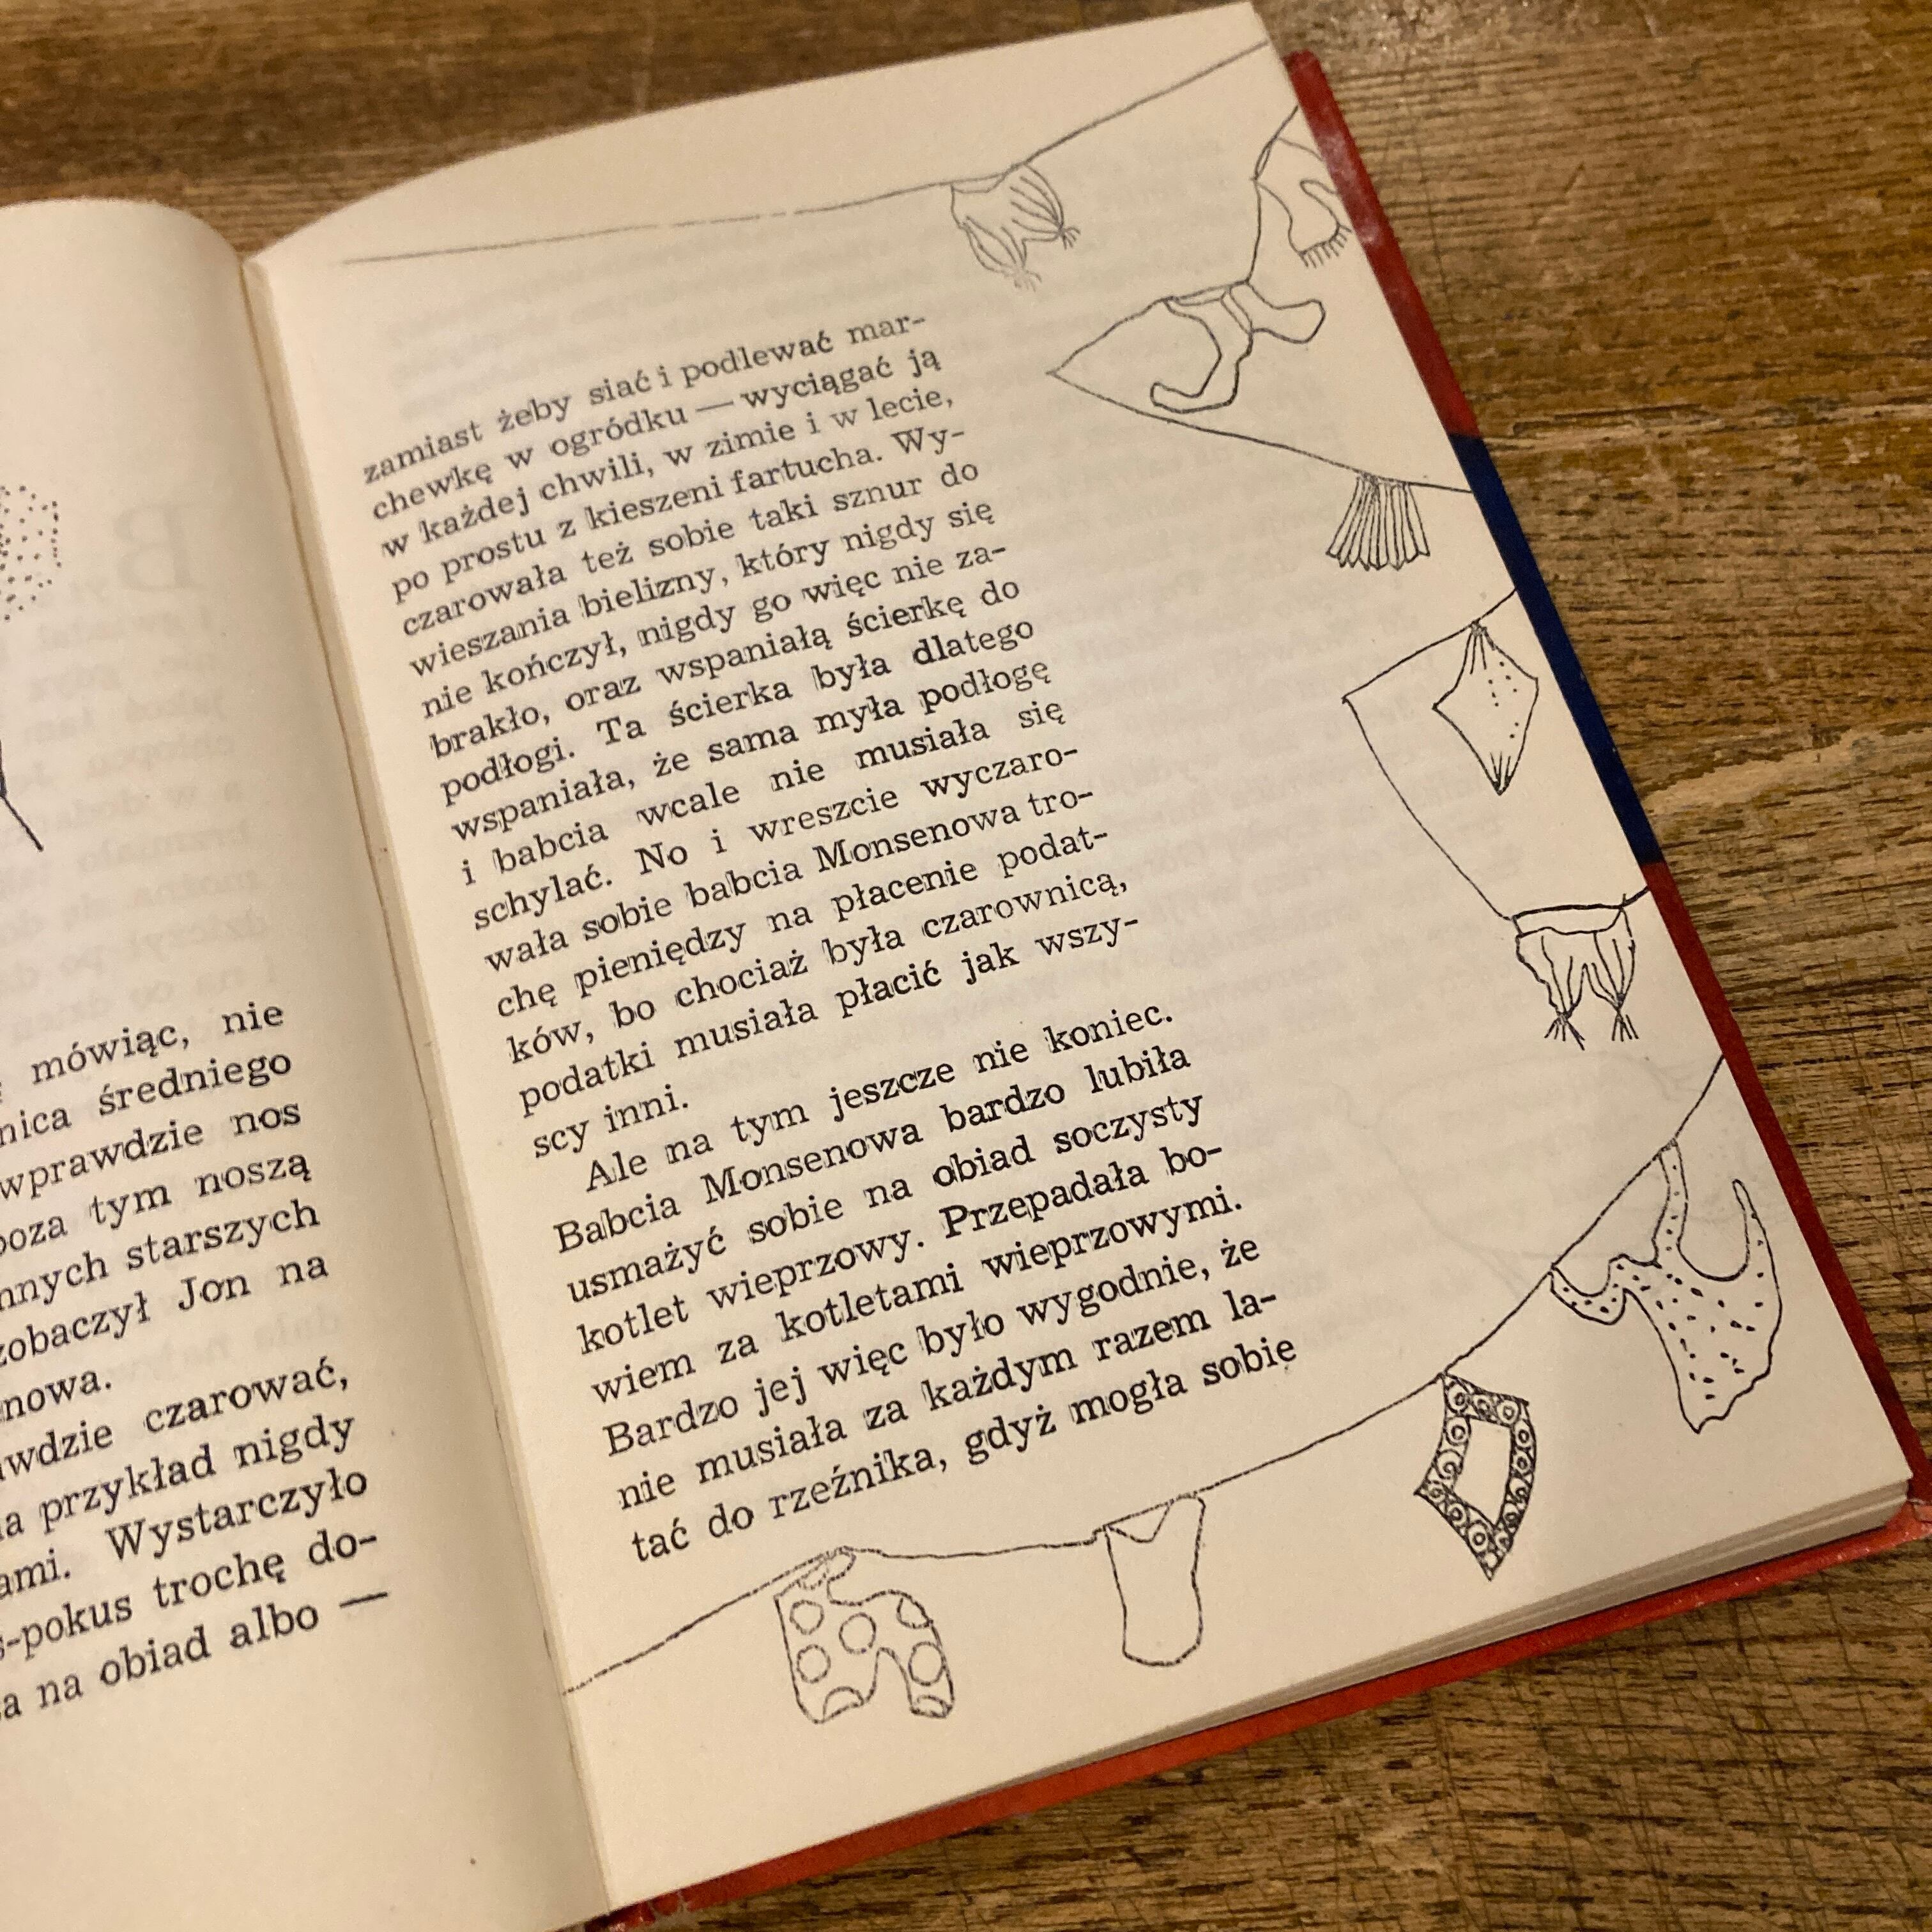 mówiąc, nie
średniego
wprawdzie nos
poza tym noszą
innych starszych
zobaczył Jon na
czarować,
na przykład nigdy
Wystarczyło
trochę do-
na obiad albo —
zamiast żeby siać i podlewać mar-
chewkę w ogródku — wyciągać ją
w każdej chwili, w zimie i w lecie,
po prostu z kieszeni fartucha. Wy-
czarowała też sobie taki sznur do
wieszania bielizny, który nigdy się
nie kończył, nigdy go więc nie za-
brakło, oraz wspaniałą ścierkę do
podłogi. Ta ścierka była dlatego
wspaniała, że sama myła podłogę
i babcia wcale nie musiała się
schylać. No i wreszcie wyczaro-
wała sobie babcia Monsenowa tro-
chę pieniędzy na płacenie podat-
ków, bo chociaż była czarownicą,
podatki musiała płacić jak wszy-
scy inni.
Ale na tym jeszcze nie koniec.
Babcia Monsenowa bardzo lubiła
usmażyć sobie na obiad soczysty
kotlet wieprzowy. Przepadała bo-
wiem za kotletami wieprzowymi.
Bardzo jej więc było wygodnie, że
nie musiała za każdym razem la-
tać do rzeźnika, gdyż mogła sobie